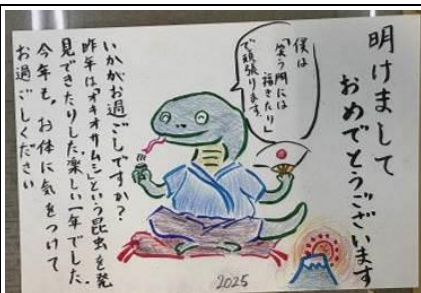 明けまして
おめでとうございます
僕は
「笑う門には
福きたり」
で頑張ります。
いかがお過ごしですか?
昨年は「オキオサムシ」という昆虫を発
見できたりした楽しい一年でした。
今年も、お体に気をつけて
お過ごしください
2025